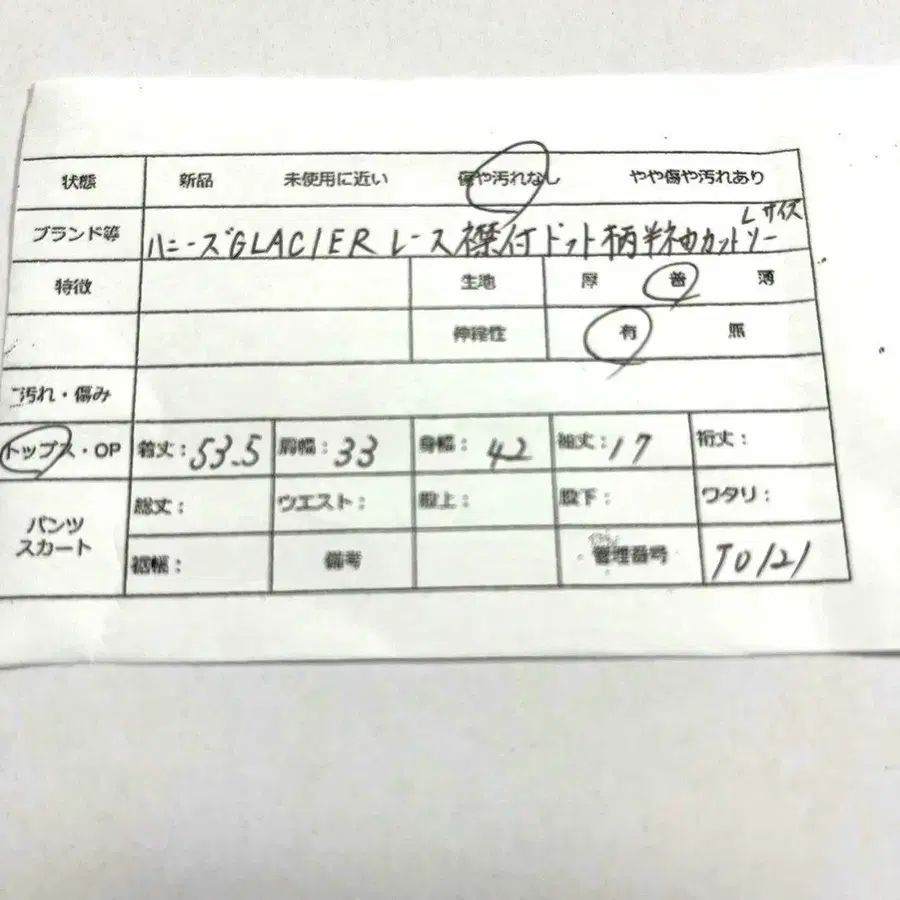 状態 新品 未使用に近い 傷や汚れなし やや傷や汚れあり
Lサイズ
ブランド等 ハニーズGLACIER レース襟付ドット柄半袖カットソー
特徴 生地 厚 普 薄
伸縮性 有 無
汚れ・傷み
トップス・OP 着丈:53.5 肩幅:33 身幅:42 袖丈:17 裄丈:
パンツ スカート 総丈: ウエスト: 股上: 股下: ワタリ:
裾幅: 備考 管理番号 T0121